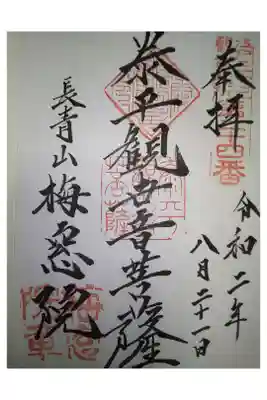 奉拝
令和二年
八月二十一日
泰平観世音菩薩
長青山 梅窓院